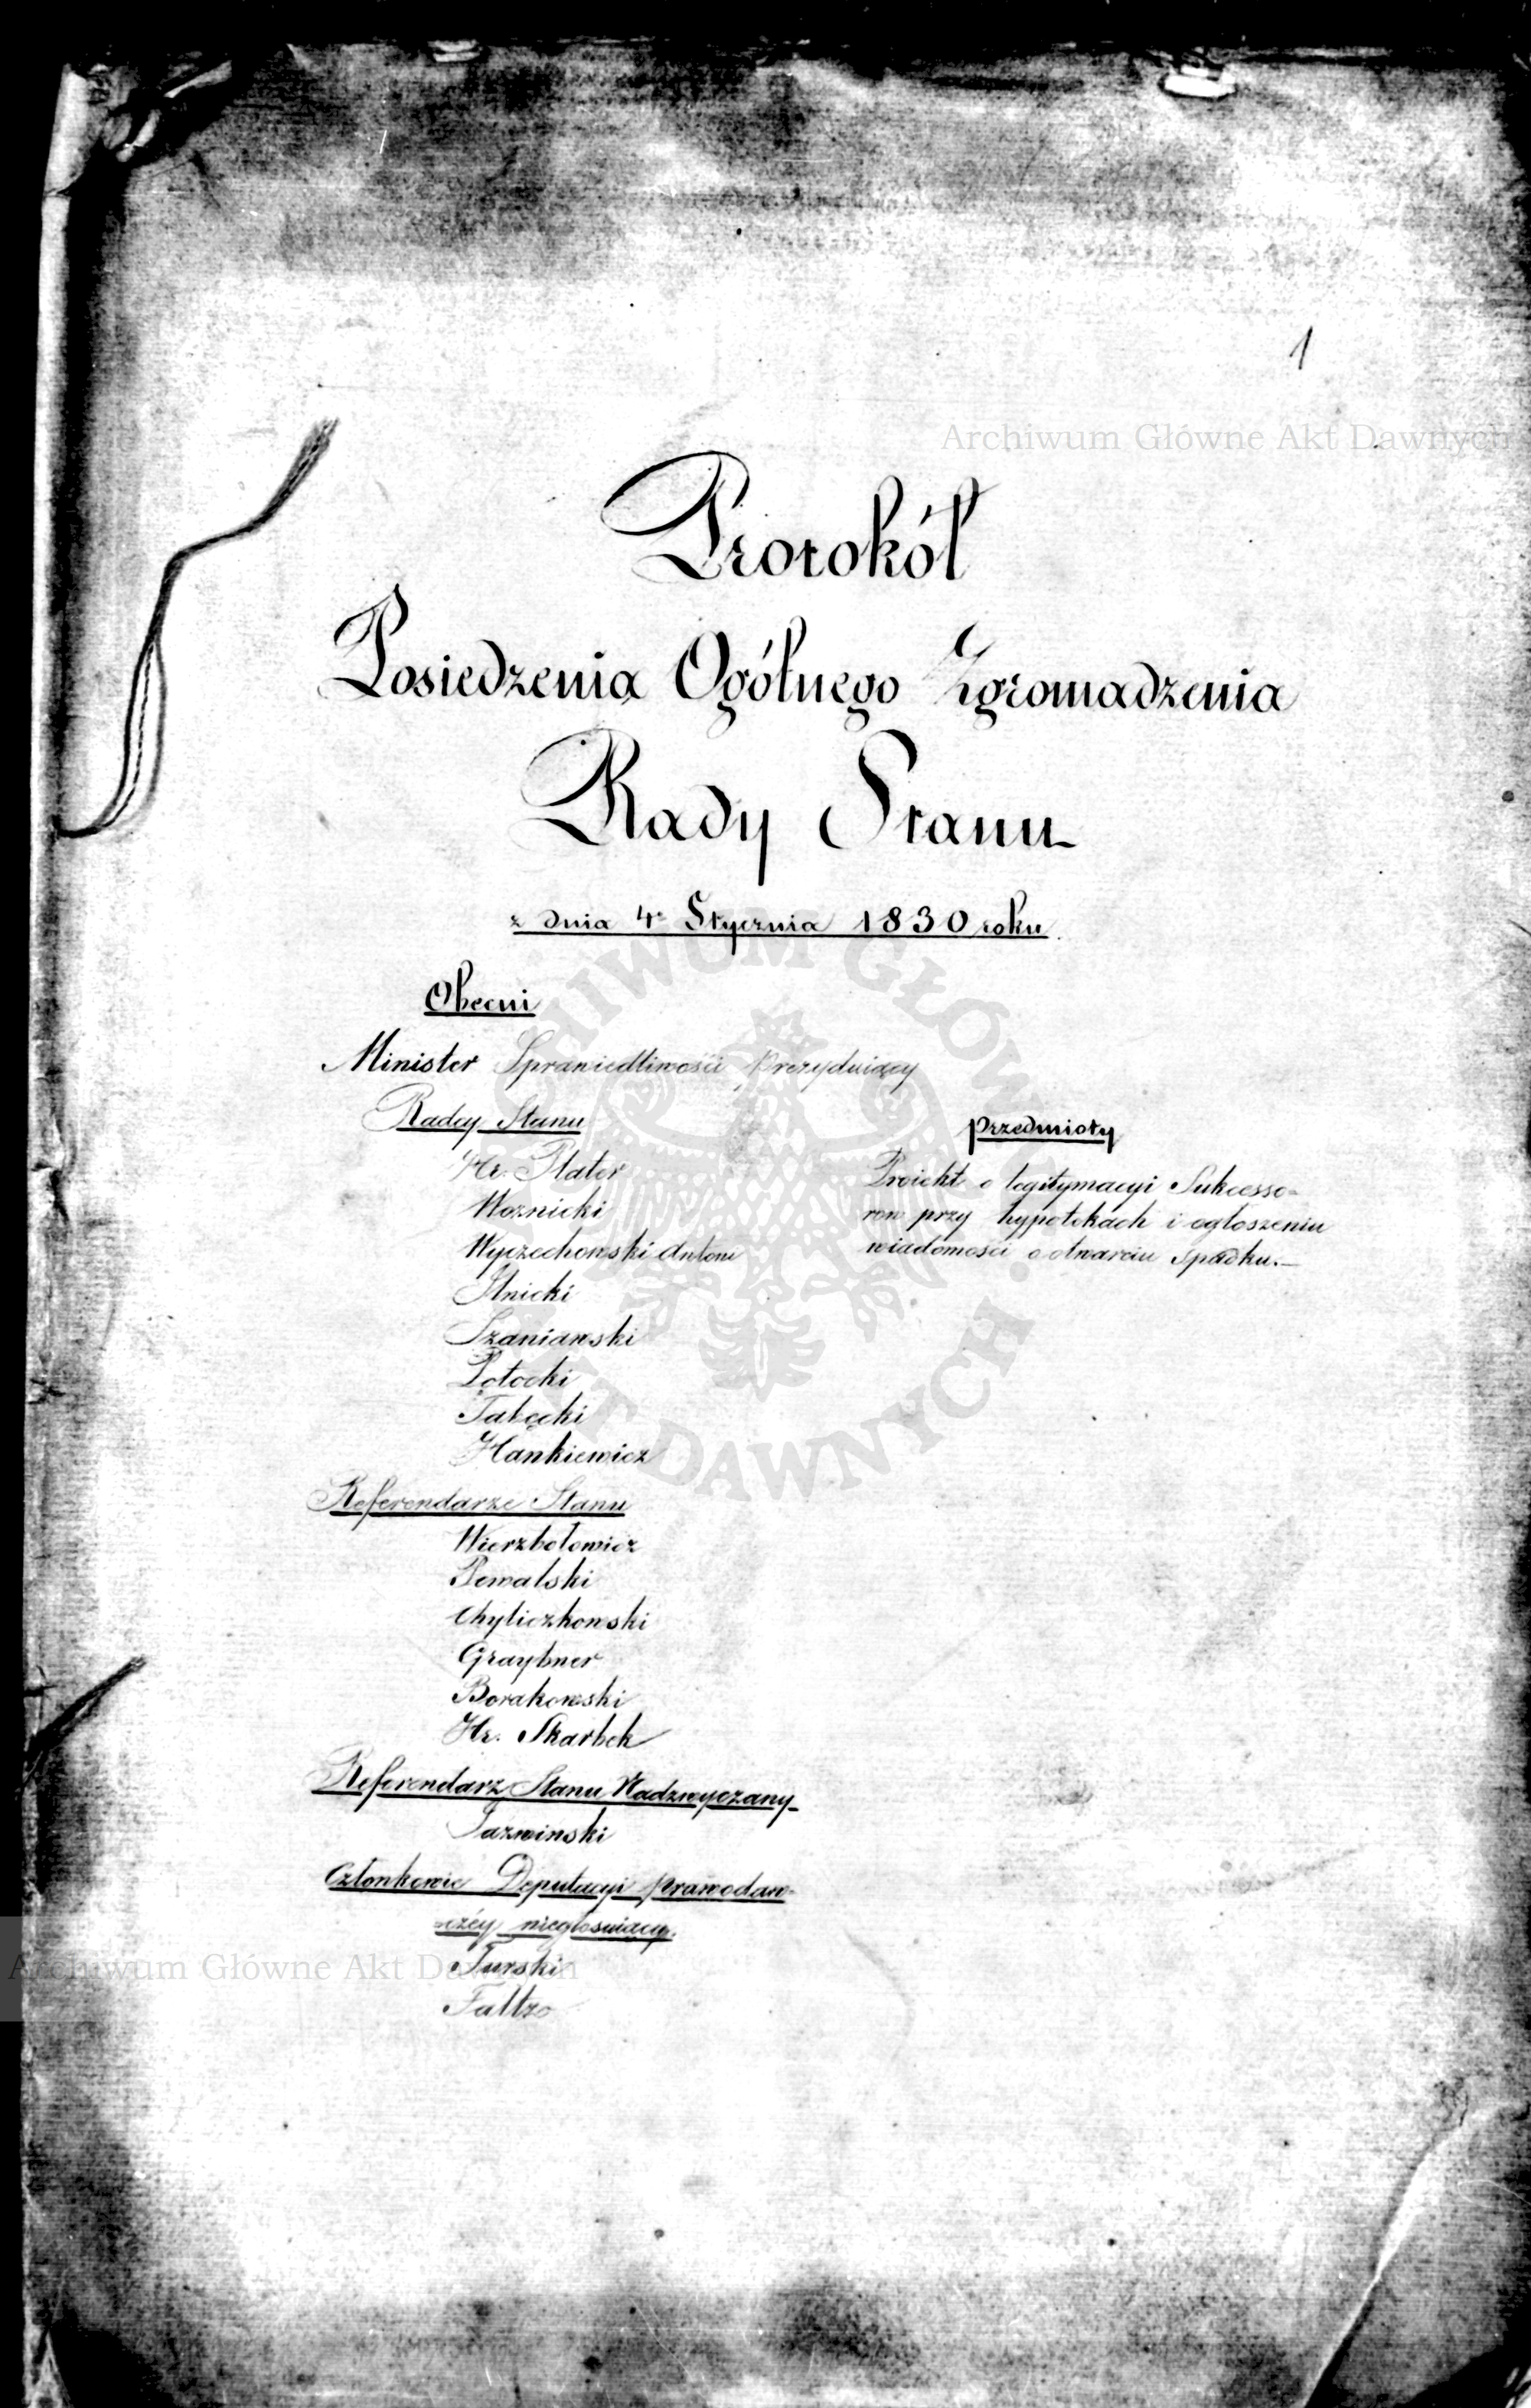 1
Archiwum Główne Akt Dawnych
Protokół
Posiedzenia Ogólnego Zgromadzenia
Rady Stanu
z dnia 4 Stycznia 1830 roku.
Obecni
Minister Sprawiedliwości Prezyduiący
Radcy Stanu
Hr. Plater
Woznicki
Wyczechowski Antoni
Szaniawski
Potocki
Hankiewicz
Referendarze Stanu
Wierzbołowicz
Powalski
Chyliczkowski
Graybner
Borakowski
Hr. Skarbek
Referendarz Stanu Nadzwyczany
Jazwinski
Członkowie Deputacyi prawodaw-
czéy niegłosuiący.
Turski
Faltzo
przedmioty
Proiekt o legitymacyi Sukcesso-
row przy hypotekach i ogłoszeniu
wiadomości o otwarciu spadku.—
ARCHIWUM GŁÓWNE AKT DAWNYCH
Archiwum Główne Akt Dawnych